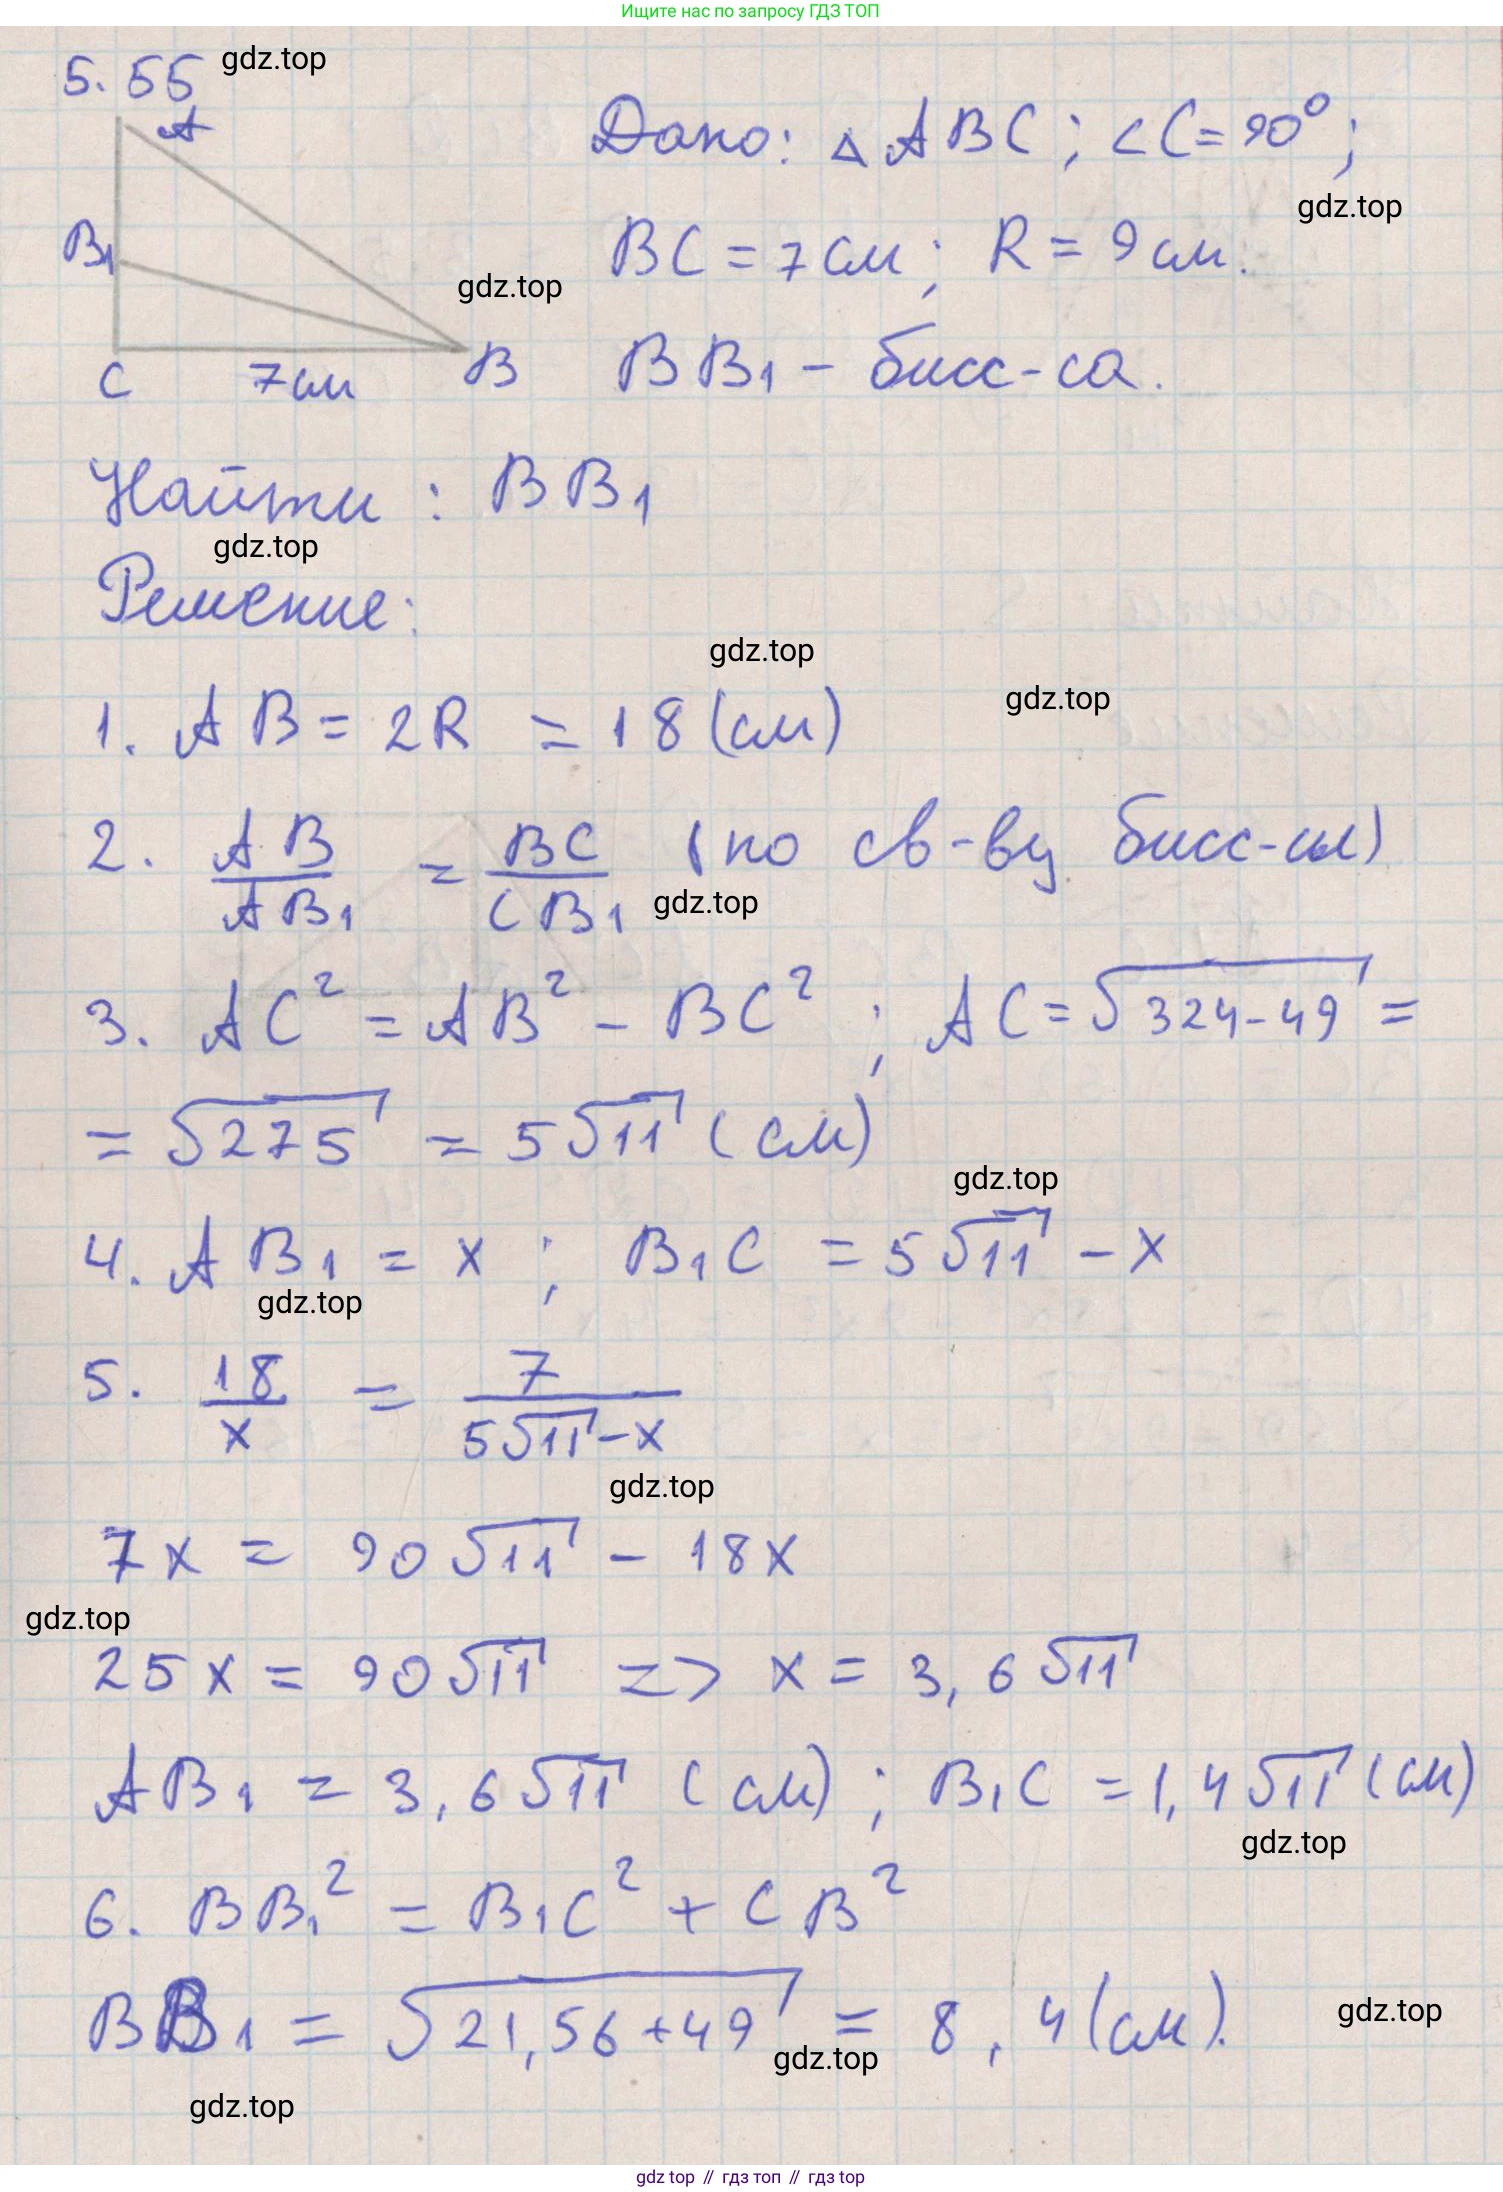 Ищите нас по запросу ГДЗ ТОП
5.55 gdz.top
A
Дано: △ABC; ∠C=90°;
gdz.top
B₁
BC = 7см; R = 9см.
gdz.top
C 7см B BB₁ – бисс-са.
Найти: BB₁
gdz.top
Решение:
gdz.top
gdz.top
1. AB = 2R = 18 (см)
2. AB/AB₁ = BC/CB₁ (по св-ву бисс-сы)
gdz.top
3. AC² = AB² – BC²; AC = √(324-49) =
= √275 = 5√11 (см)
gdz.top
4. AB₁ = x; B₁C = 5√11 – x
gdz.top
5. 18/x = 7/(5√11 – x)
gdz.top
7x = 90√11 – 18x
gdz.top
25x = 90√11 => x = 3,6√11
AB₁ = 3,6√11 (см); B₁C = 1,4√11 (см)
gdz.top
6. BB₁² = B₁C² + CB²
BB₁ = √(21,56+49) = 8,4(см).
gdz.top
gdz.top
gdz.top
gdz top // гдз топ // гдз top